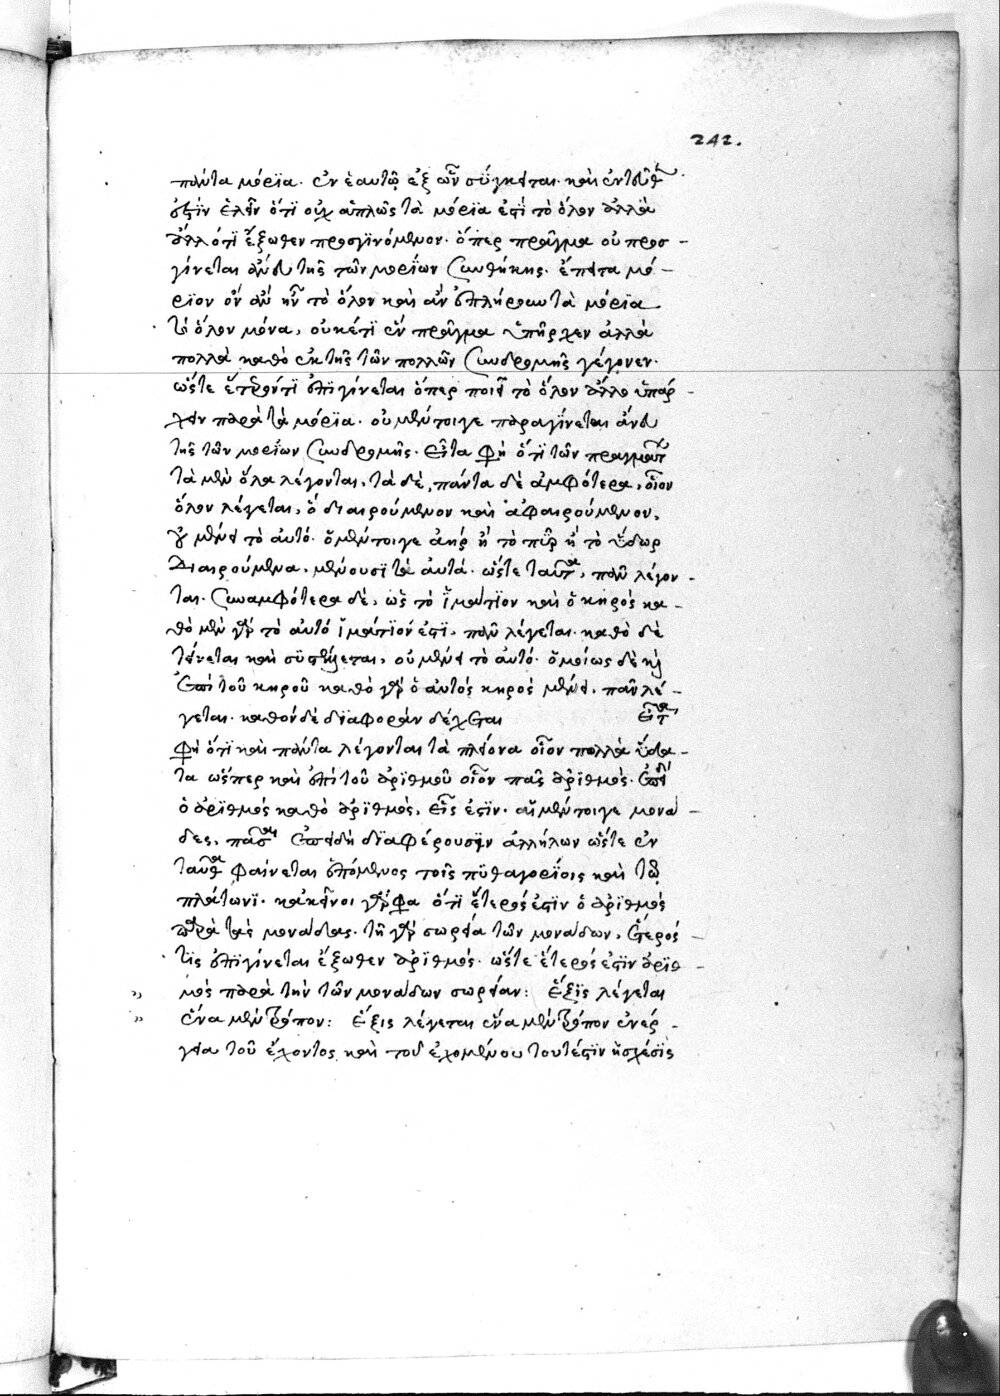 242.
πάντα μόρϊα. ἐν ἑαυτῷ ἐξ ὧν σύγκειται. καὶ ἐντεῦθεν
ἐστὶν ἑλεῖν ὅτϊ οὐχ ἁπλῶς τὰ μόρϊα ἐστὶ τὸ ὅλον ἀλλὰ
ἄλλό τϊ ἔξωθεν προσγϊνόμενον. ὅπερ πρᾶγμα οὐ προσ-
γίνεται ἄνευ τῆς τῶν μορΐων συνθήκης. ἔπειτα μό-
ρϊον ὂν ἂν ἦν τὸ ὅλον καὶ ἂν ἐπλήρουν τὰ μόρϊα
τὸ ὅλον μόνα, οὐκέτϊ ἓν πρᾶγμα ὑπῆρχεν ἀλλὰ
πολλὰ καθὸ ἐκ τῆς τῶν πολλῶν συνδρομῆς γέγονεν.
ὥστε ἕτερόν τϊ ἐπϊγίνεται ὅπερ ποιεῖ τὸ ὅλον ἄλλο ὑπάρ-
χειν παρὰ τὰ μόρϊα. οὐ μέντοιγε παραγΐνεται ἄνευ
τῆς τῶν μορΐων συνδρομῆς. εἶτα φησὶ ὅτϊ τῶν πραγμάτων
τὰ μὲν ὅλα λέγονται, τὰ δὲ, πάντα δὲ ἀμφότερα, οἷον
ὅλον λέγεται, ὃ διαιρούμενον καὶ ἀφαιρούμενον,
οὐ μένει τὸ αὐτό. ὁ μέντοιγε ἀὴρ ἢ τὸ πῦρ ἢ τὸ ὕδωρ
διαιρούμενα, μένουσϊ τὰ αὐτά. ὥστε ταῦτα, πᾶν λέγον-
ται. συναμφότερα δὲ, ὡς τὸ ἱμάτϊον καὶ ὁ κηρός κα-
θὸ μὲν γὰρ τὸ αὐτό ἱμάτϊόν ἐστϊ, πᾶν λέγεται. καθὸ δὲ
τείνεται καὶ συστέλλεται, οὐ μένει τὸ αὐτό. ὁμοίως δὲ καὶ
ἐπὶ τοῦ κηροῦ καθὸ γὰρ ὁ αὐτός κηρός μένει, πᾶν λέ-
γεται. καθὸν δὲ δϊαφορὰν δέχεται εἶτα
φησὶ ὅτϊ καὶ πάντα λέγονται τὰ πλείονα οἷον πολλὰ ὕδα-
τα ὥσπερ καὶ ἐπὶ τοῦ ἀρϊθμοῦ οἷον πᾶς ἀρϊθμός. ἐπεὶ
ὁ ἀρϊθμός καθὸ ἀρϊθμός, εἷς ἐστιν. αἱ μέντοιγε μονά-
δες, πᾶσαι ἐπειδὴ δϊαφέρουσϊν ἀλλήλων ὥστε ἐν
ταῦθα φαίνεται ἑπόμενος τοῖς πϋθαγορΐοις καὶ τῷ
πλάτωνϊ. κἀκεῖνοι γάρ φασι ὅτϊ ἕτερός ἐστϊν ὁ ἀρϊθμός
παρὰ τὰς μονάδας. τῇ γὰρ σωρεία τῶν μονάδων, ἕτερός
τϊς ἐπϊγίνεται ἔξωθεν ἀρϊθμός. ὥστε ἕτερός ἐστϊν ἀρϊθ-
μός παρὰ τὴν τῶν μονάδων σωρείαν: ἕξϊς λέγεται
ἕνα μὲν τρόπον: ἕξις λέγεται ἕνα μὲν τρόπον ἐνέρ-
γεια τοῦ ἔχοντος καὶ τοῦ ἐχομένου τουτέστϊν ἡ σχέσϊς